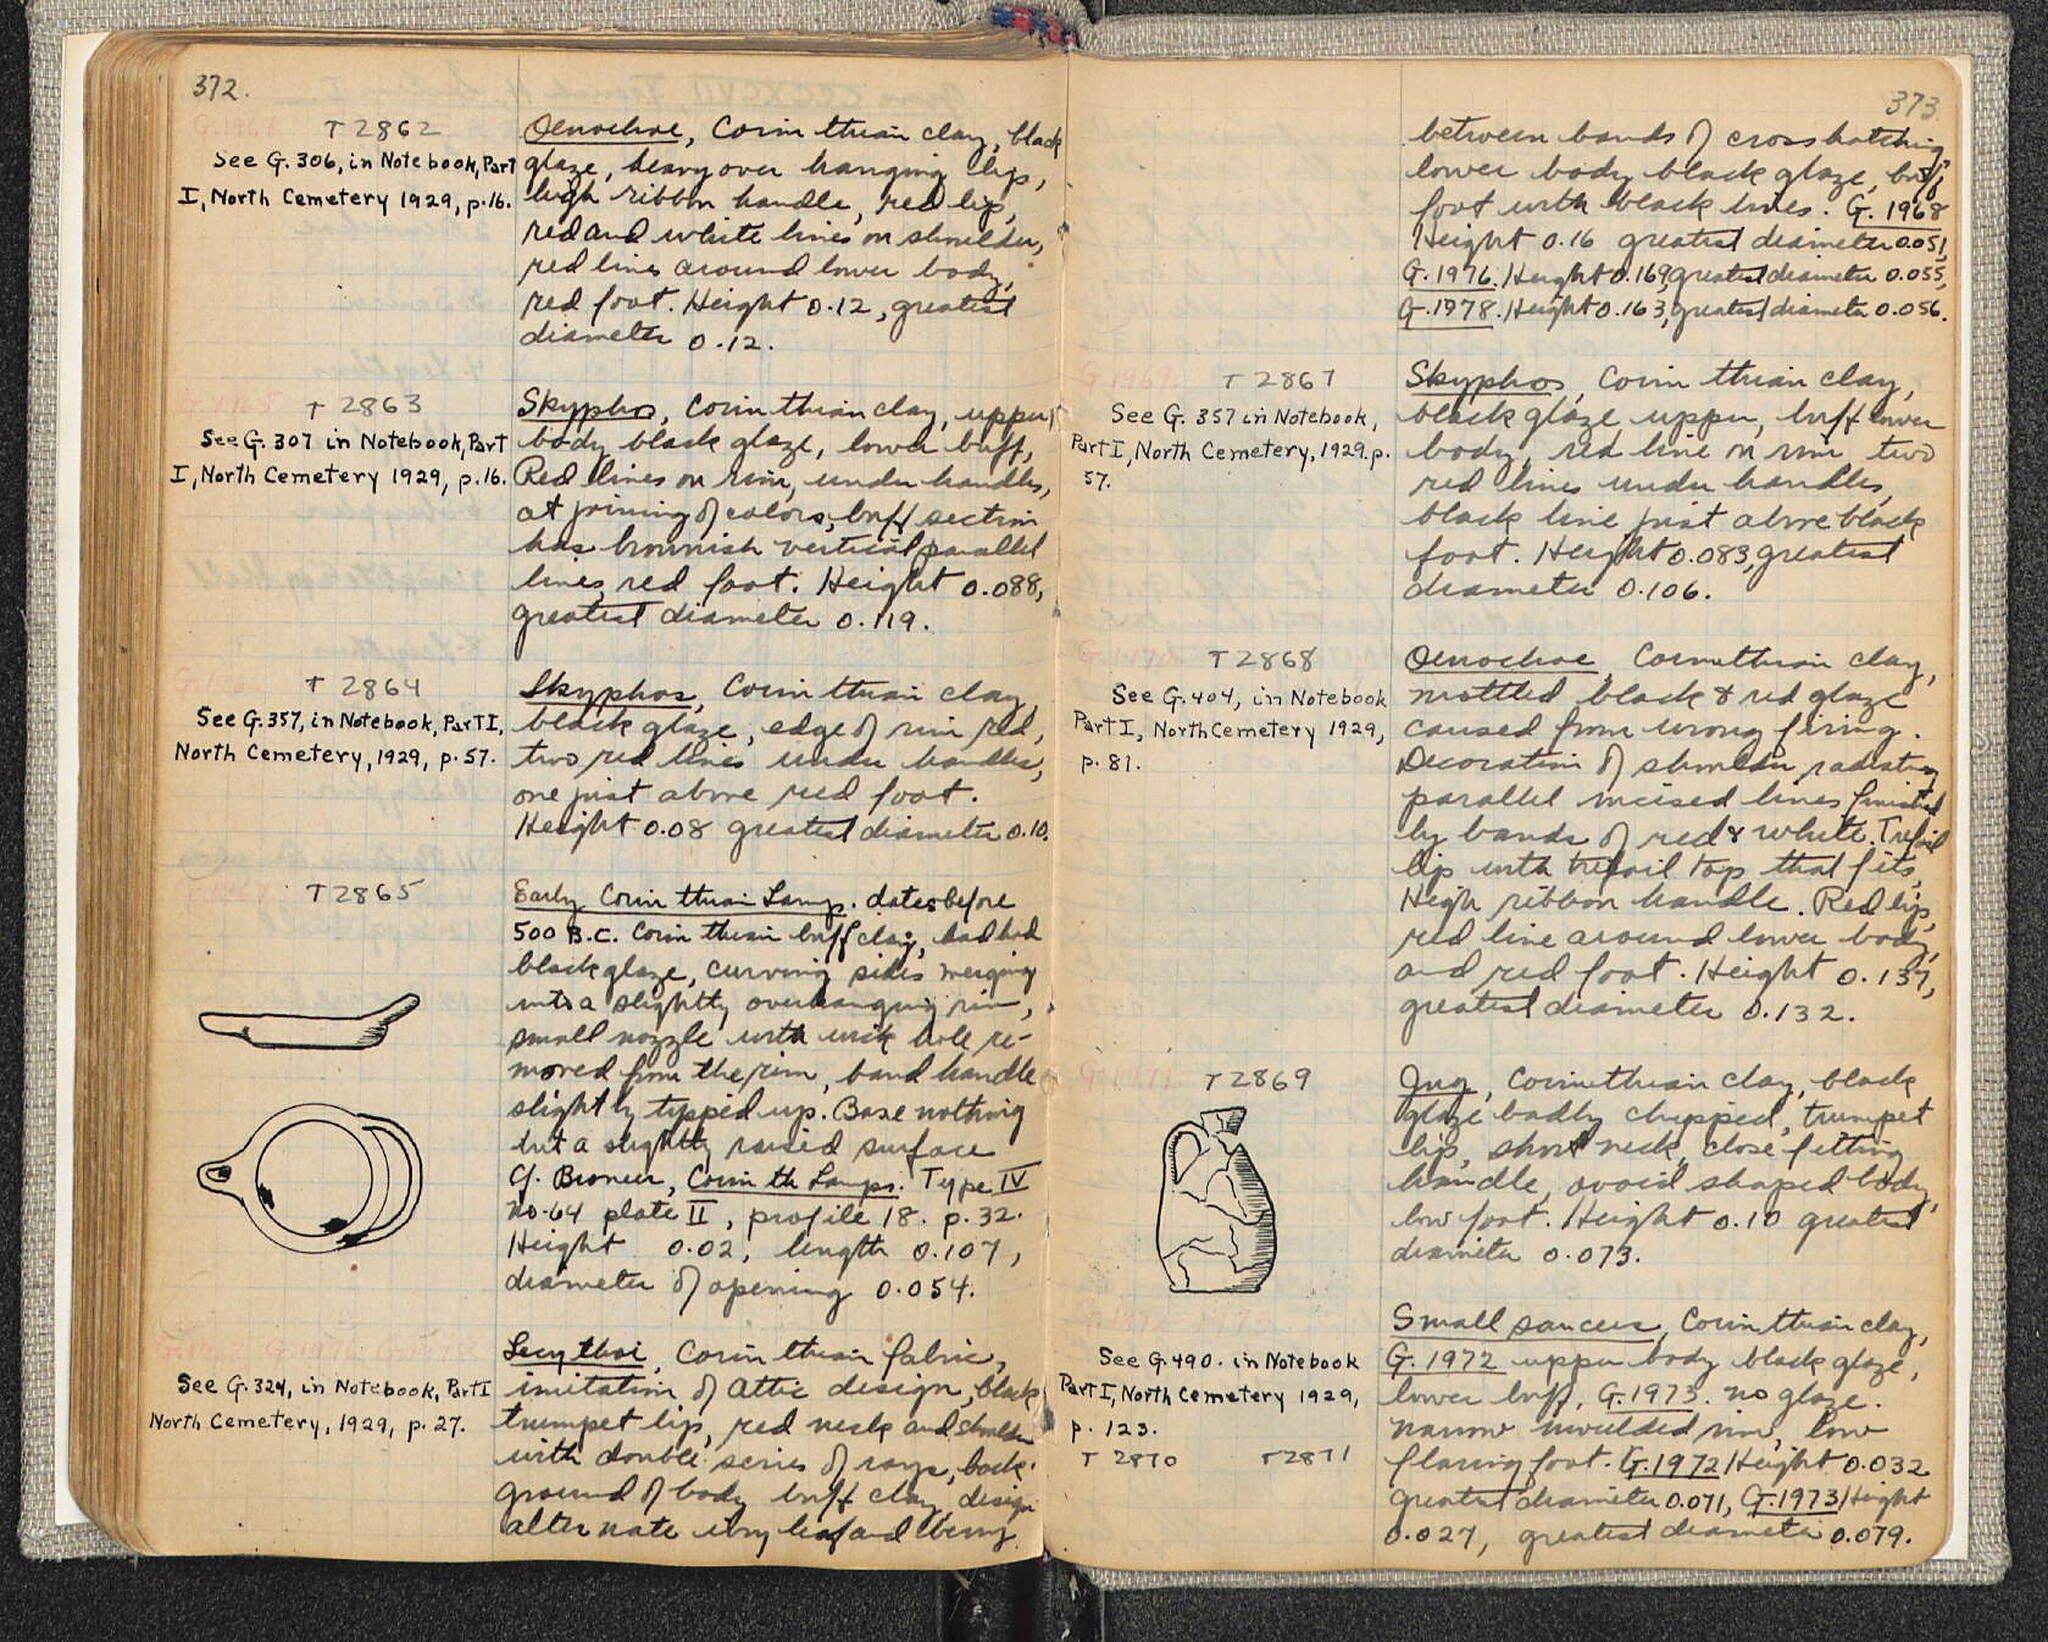 372.
T 2862
See G. 306, in Notebook, Part
I, North Cemetery 1929, p. 16.
Oenochoe, Corinthian clay, black
glaze, heavy over hanging lip,
high ribbon handle, red lip,
red and white lines on shoulder,
red lines around lower body,
red foot. Height 0.12, greatest
diameter 0.12.
T 2863
See G. 307 in Notebook, Part
I, North Cemetery 1929, p. 16.
Skyphos, Corinthian clay, upper
body black glaze, lower buff,
Red lines on rim, under handles,
at joining of colors, buff section
has brownish vertical parallel
lines, red foot. Height 0.088,
greatest diameter 0.119.
T 2864
See G. 357, in Notebook, Part I,
North Cemetery, 1929, p. 57.
Skyphos, Corinthian clay,
black glaze, edge of rim red,
two red lines under handles,
one just above red foot.
Height 0.08 greatest diameter 0.10.
T 2865
Early Corinthian Lamp. dates before
500 B.C. Corinthian buff clay, had had
black glaze, curving sides merging
into a slightly overhanging rim,
small nozzle with wick hole re-
moved from the rim, band handle
slightly tipped up. Base nothing
but a slightly raised surface
Cf. Broneer, Corinth Lamps. Type IV
No. 64 plate II, profile 18. p. 32.
Height 0.02, length 0.107,
diameter of opening 0.054.
See G. 324, in Notebook, Part I
North Cemetery, 1929, p. 27.
Lecythoi, Corinthian fabric,
imitation of Attic design, black
trumpet lip, red neck and shoulder
with double series of rays, back-
ground of body buff clay, design
alternate ivy leaf and berry
373.
between bands of cross hatching
lower body black glaze, buff
foot with black lines. G. 1968
Height 0.16 greatest diameter 0.051,
G. 1976. Height 0.169, greatest diameter 0.055,
G. 1978. Height 0.163, greatest diameter 0.056.
T 2867
See G. 357 in Notebook,
Part I, North Cemetery, 1929. p.
57.
Skyphos, Corinthian clay,
black glaze upper, buff lower
body, red line on rim, two
red lines under handles,
black line just above black
foot. Height 0.083, greatest
diameter 0.106.
T 2868
See G. 404, in Notebook
Part I, North Cemetery 1929,
p. 81.
Oenochoe, Corinthian clay,
mottled black & red glaze
caused from wrong firing.
Decoration of shoulder, radiating
parallel incised lines finished
by bands of red & white. Trefoil
lip with trefoil top that fits,
High ribbon handle. Red lip,
red line around lower body,
and red foot. Height 0.137,
greatest diameter 0.132.
G. 1971
T 2869
Jug, Corinthian clay, black
glaze badly chipped, trumpet
lip, short neck, close fitting
handle, ovoid shaped body,
low foot. Height 0.10 greatest
diameter 0.073.
See G. 490. in Notebook
Part I, North Cemetery 1929,
p. 123.
T 2870 T 2871
Small saucers, Corinthian clay,
G. 1972 upper body black glaze,
lower buff, G. 1973. no glaze.
narrow moulded rim, low
flaring foot. G. 1972 Height 0.032
greatest diameter 0.071, G. 1973 Height
0.027, greatest diameter 0.079.